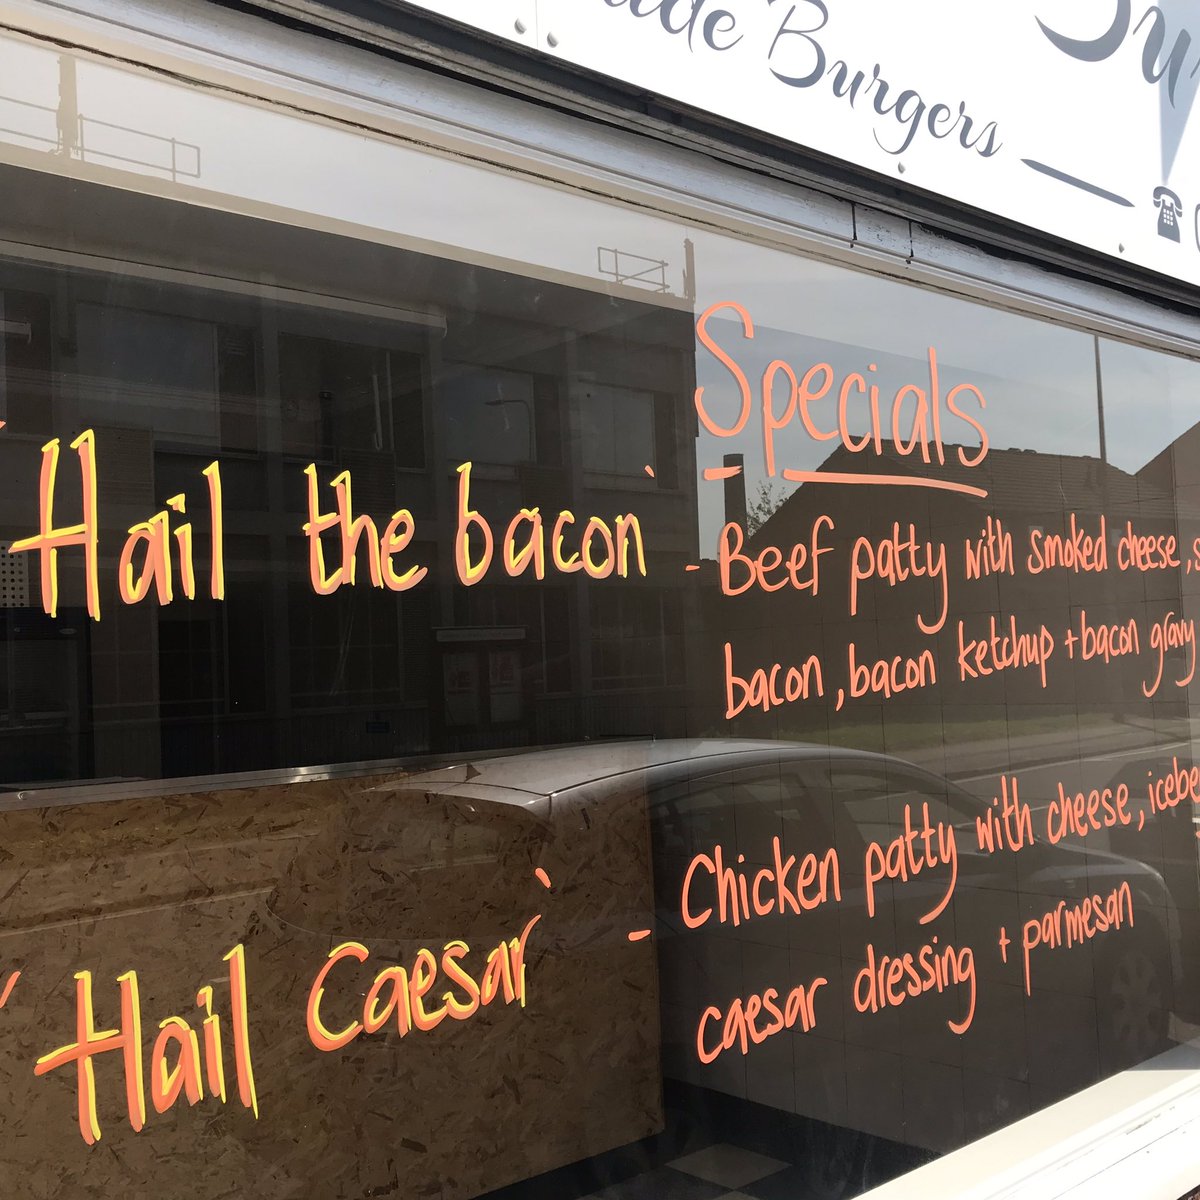 Burgers
Specials
'Hail the bacon' - Beef patty with smoked cheese,
bacon, bacon ketchup + bacon gravy
'Hail Caesar' - Chicken patty with cheese,
caesar dressing + parmesan